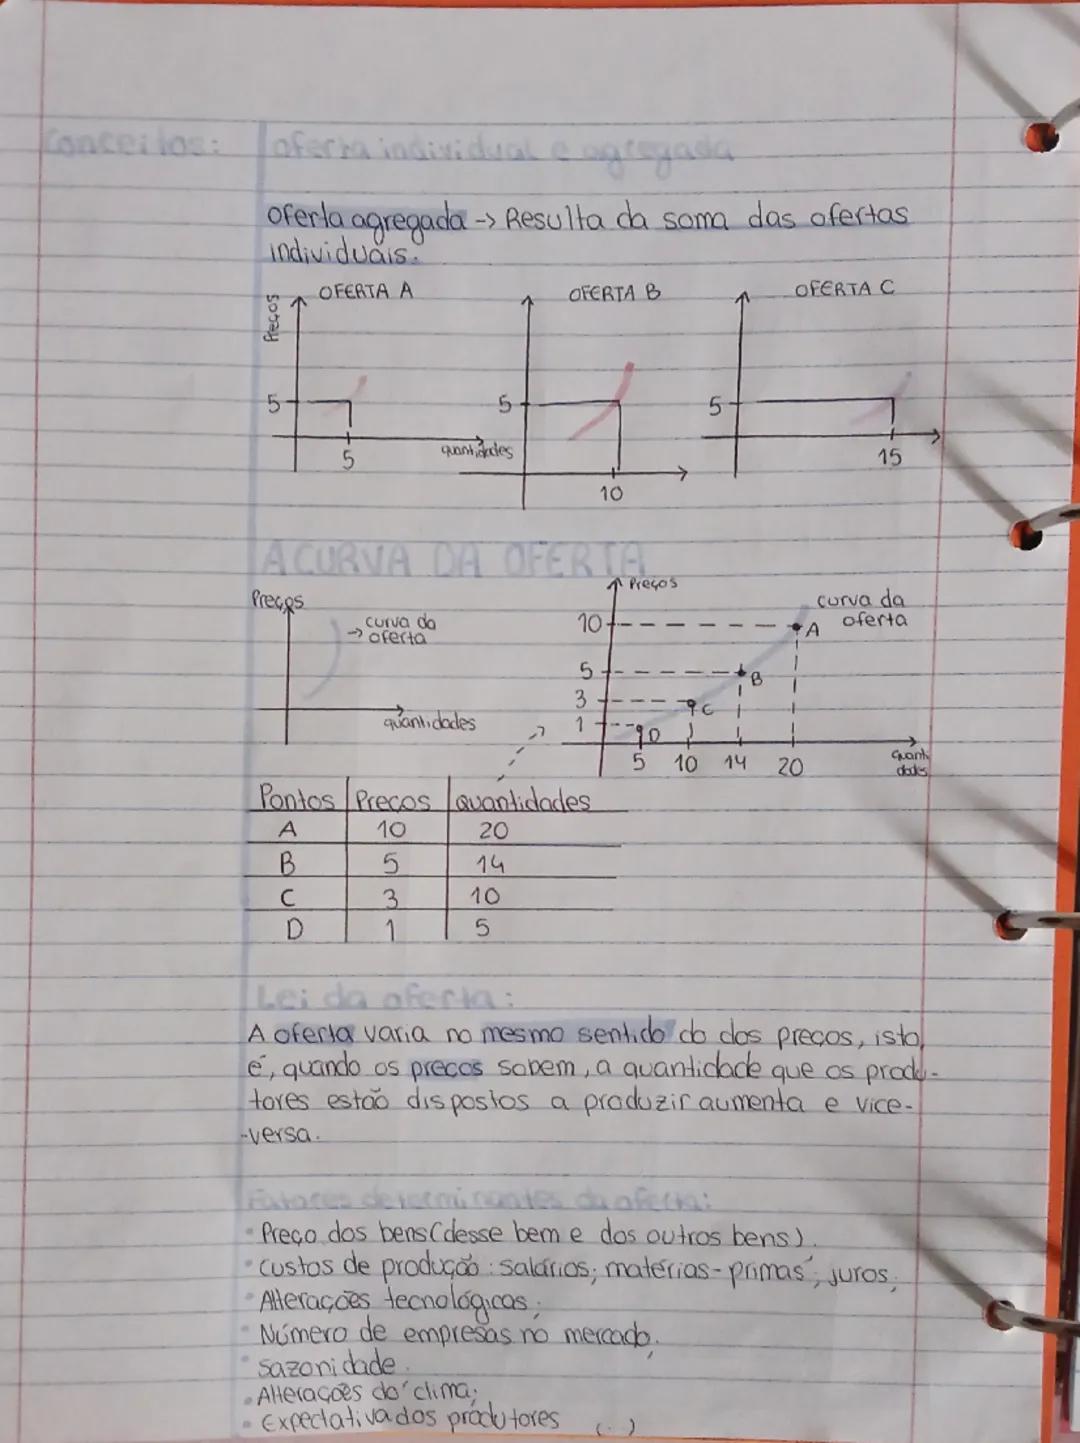 Conceitos: oferta individual e agregada
oferta agregada -> Resulta da soma das ofertas
individuais.
OFERTA A OFERTA B OFERTA C
Preços
5 5 5
5 quantidades 10 15
A CURVA DA OFERTA
Preços
-> curva da
oferta
quantidades
Preços
curva da
oferta
10 A
5 B
3 C
1 D
5 10 14 20
quanti
dades
Pontos Preços quantidades
A 10 20
B 5 14
C 3 10
D 1 5
Lei da oferta:
A oferta varia no mesmo sentido do dos preços, isto
é, quando os preços sobem, a quantidade que os produ-
tores estão dispostos a produzir aumenta e vice-
-versa.
Fatores determinantes da oferta:
• Preço dos bens (desse bem e dos outros bens).
• custos de produção: salários; matérias-primas; juros;
• Alterações tecnológicas;
• Número de empresas no mercado;
• sazonidade.
• Alterações do clima;
• Expectativa dos produtores (...)